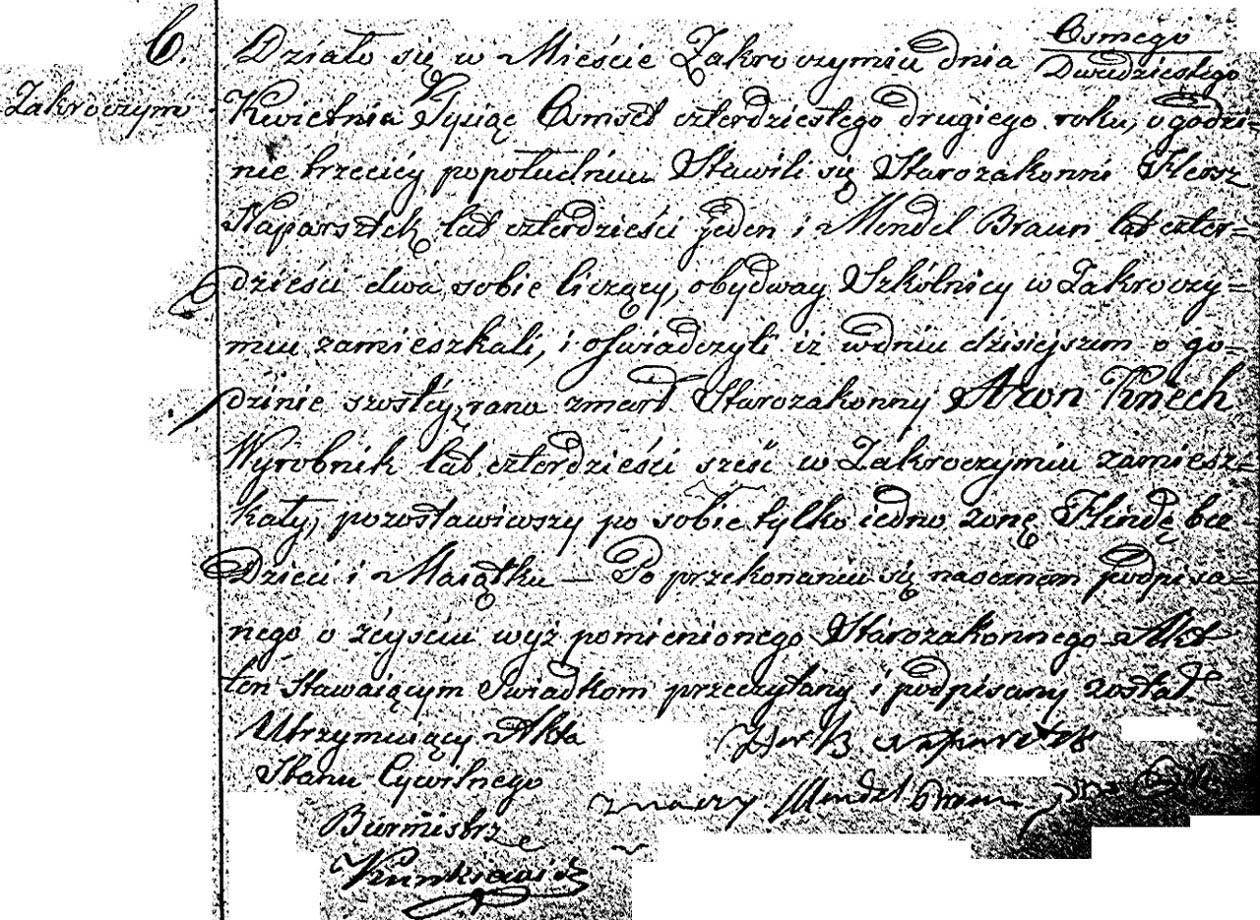 6.
Zakroczym
Działo się w Mieście Zakroczymiu dnia Osmego
Dwudziestego
Kwietnia Tysiąc Osmset czterdziestego drugiego roku, o godzi=
nie trzeciéy popołudniu Stawili się Starozakonni Hersz
Naparsztek lat czterdzieści jeden i Mendel Braun lat czter=
dzieści dwa sobie liczący, obydway Szkólnicy w Zakroczy=
miu zamieszkali, i oświadczyli iż wdniu dzisiejszim o go=
dzinie szostéy rano zmarł Starozakonny Aron Knech
Wyrobnik lat czterdzieści sześć w Zakroczymiu zamiesz=
kały, pozostawiwszy po sobie tylko iedno żonę Hindę bez
Dzieci i Maiątku — Po przekonaniu się naocznem podpisa=
nego o zeyściu wyż pomienionego Starozakonnego Akt
ten stawaiącym Swiadkom przeczytany i podpisany został
Utrzymuiący Akta
Stanu Cywilnego
Burmistrz
znaczy Mendel